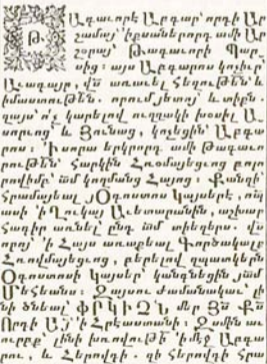 Թ
Ագաւորէ Աբգար՝ որդի Ար
շամայ՝ ՚ի քսաներորդ ամի Ար
շըրայ՝ Թագաւորի Պար
սից։ այս Աբգարոս կոչիւր՝
Աւագայր, վս̃ առաւել հեզութեն̃ և
իմաստութեն̃. որում յետոյ՝ և տիովն.
զայս՝ ոչ կարելով ուղղակի խօսիլ Ա
սորւոց՝ և Յունաց, կոչեցին՝ Աբգա
րոս։ ՚Ի սորա երկրորդ ամի Թագաւո
րութեն̃՝ հարկին Հռօմայեցւոց բոլո
րովիմբ՝ ամ̃ կողմանց Հայոց։ Քանզի՝
հրամայեալ յՕգոստոս Կայսերէ, որպ̃
ասի ՚ի Ղուկայ Աւետարանին, աշխար
հագիր առնել՝ ընդ ամ̃ տիեզերս. վս̃
որոյ՝ ՚ի Հայս առաքեալ Գործակալք
Հռովմայեցւոց, բերելով զպատկերն
Օգոստոսի Կայսեր՝ կանգնեցին յամ̃
Մեհեանս։ Զայսու ժամանակաւ՝ լի
նի ծնեալ՝ ՓՐԿԻՉՆ մեր Յս̃ Քս̃
Որդի Այ̃՝ ՚ի Հրէաստանի։ Զսմին աւ
ուրբք՝ լինի խռովութի̃՝ ՚ի մէջ Աբգա
րու, և Հերովդի. զի Հերովդի հրա